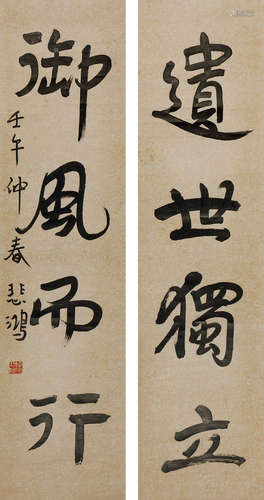 遺世獨立
御風而行
壬午仲春悲鴻